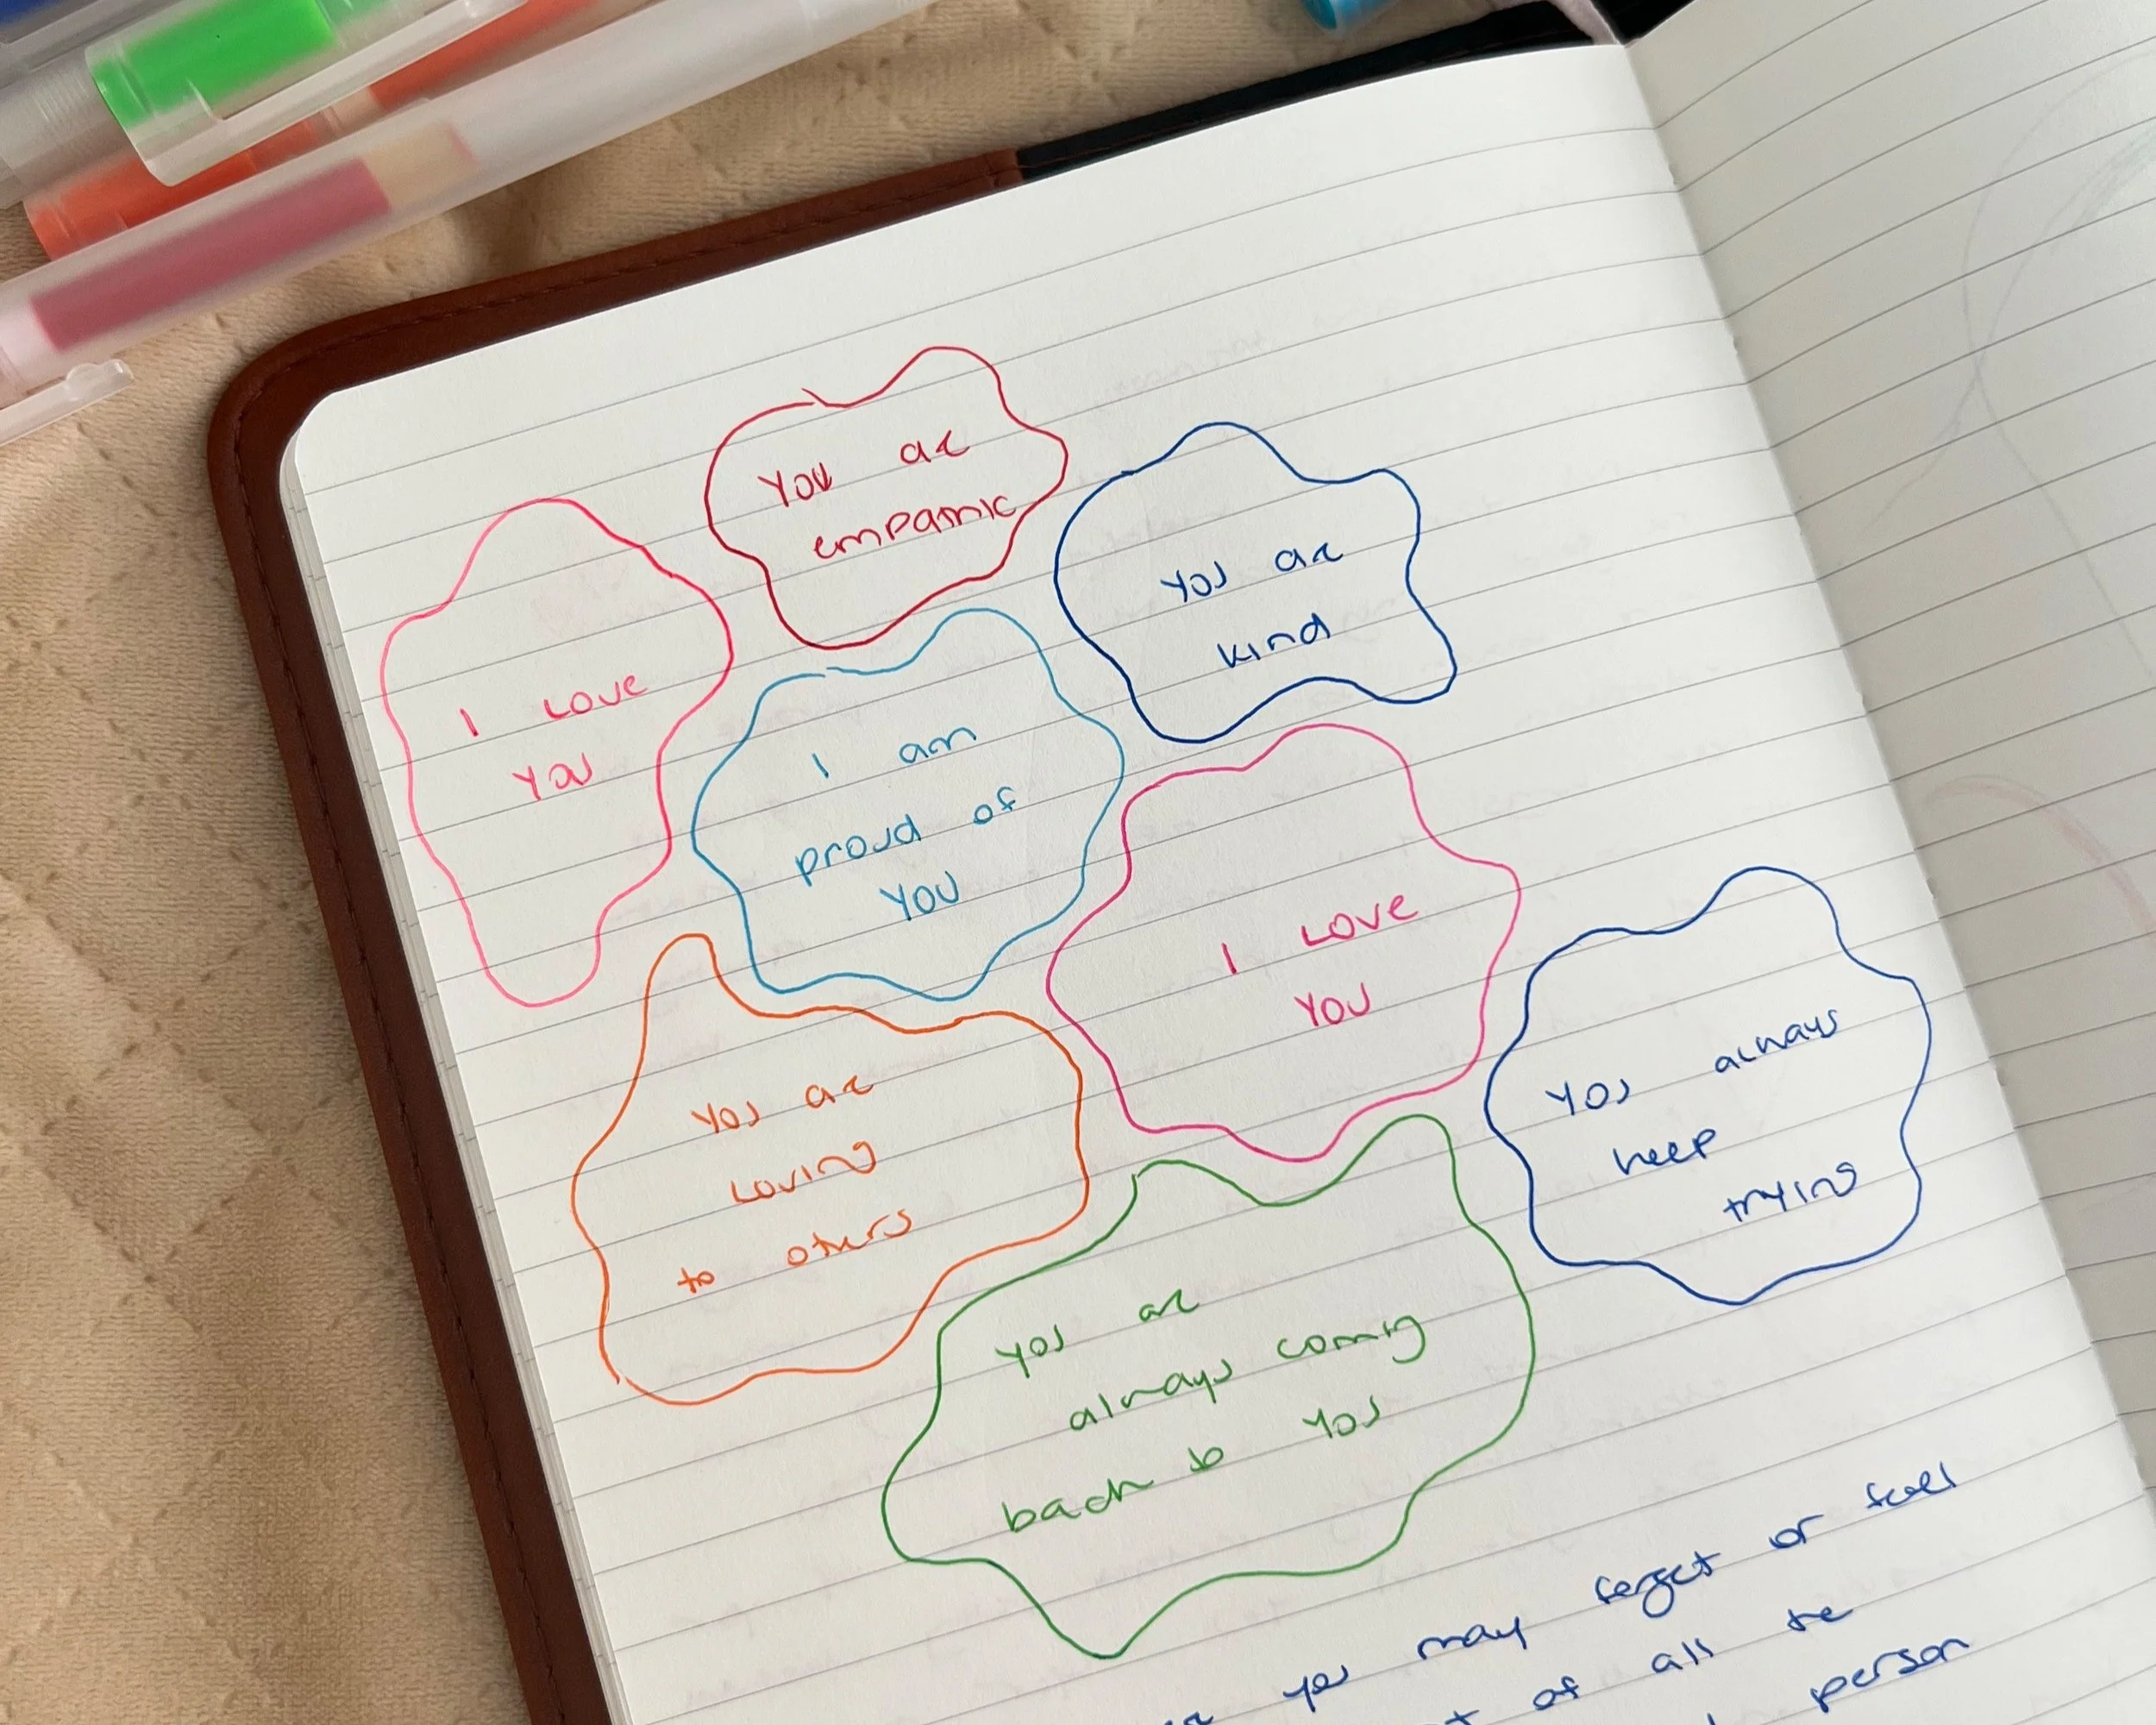 You are
empathic
You are
kind
I Love
You
I am
proud of
You
I Love
You
You always
keep
trying
You are
Loving
to others
You are
always coming
back to You
you may forget or feel
of all the
person